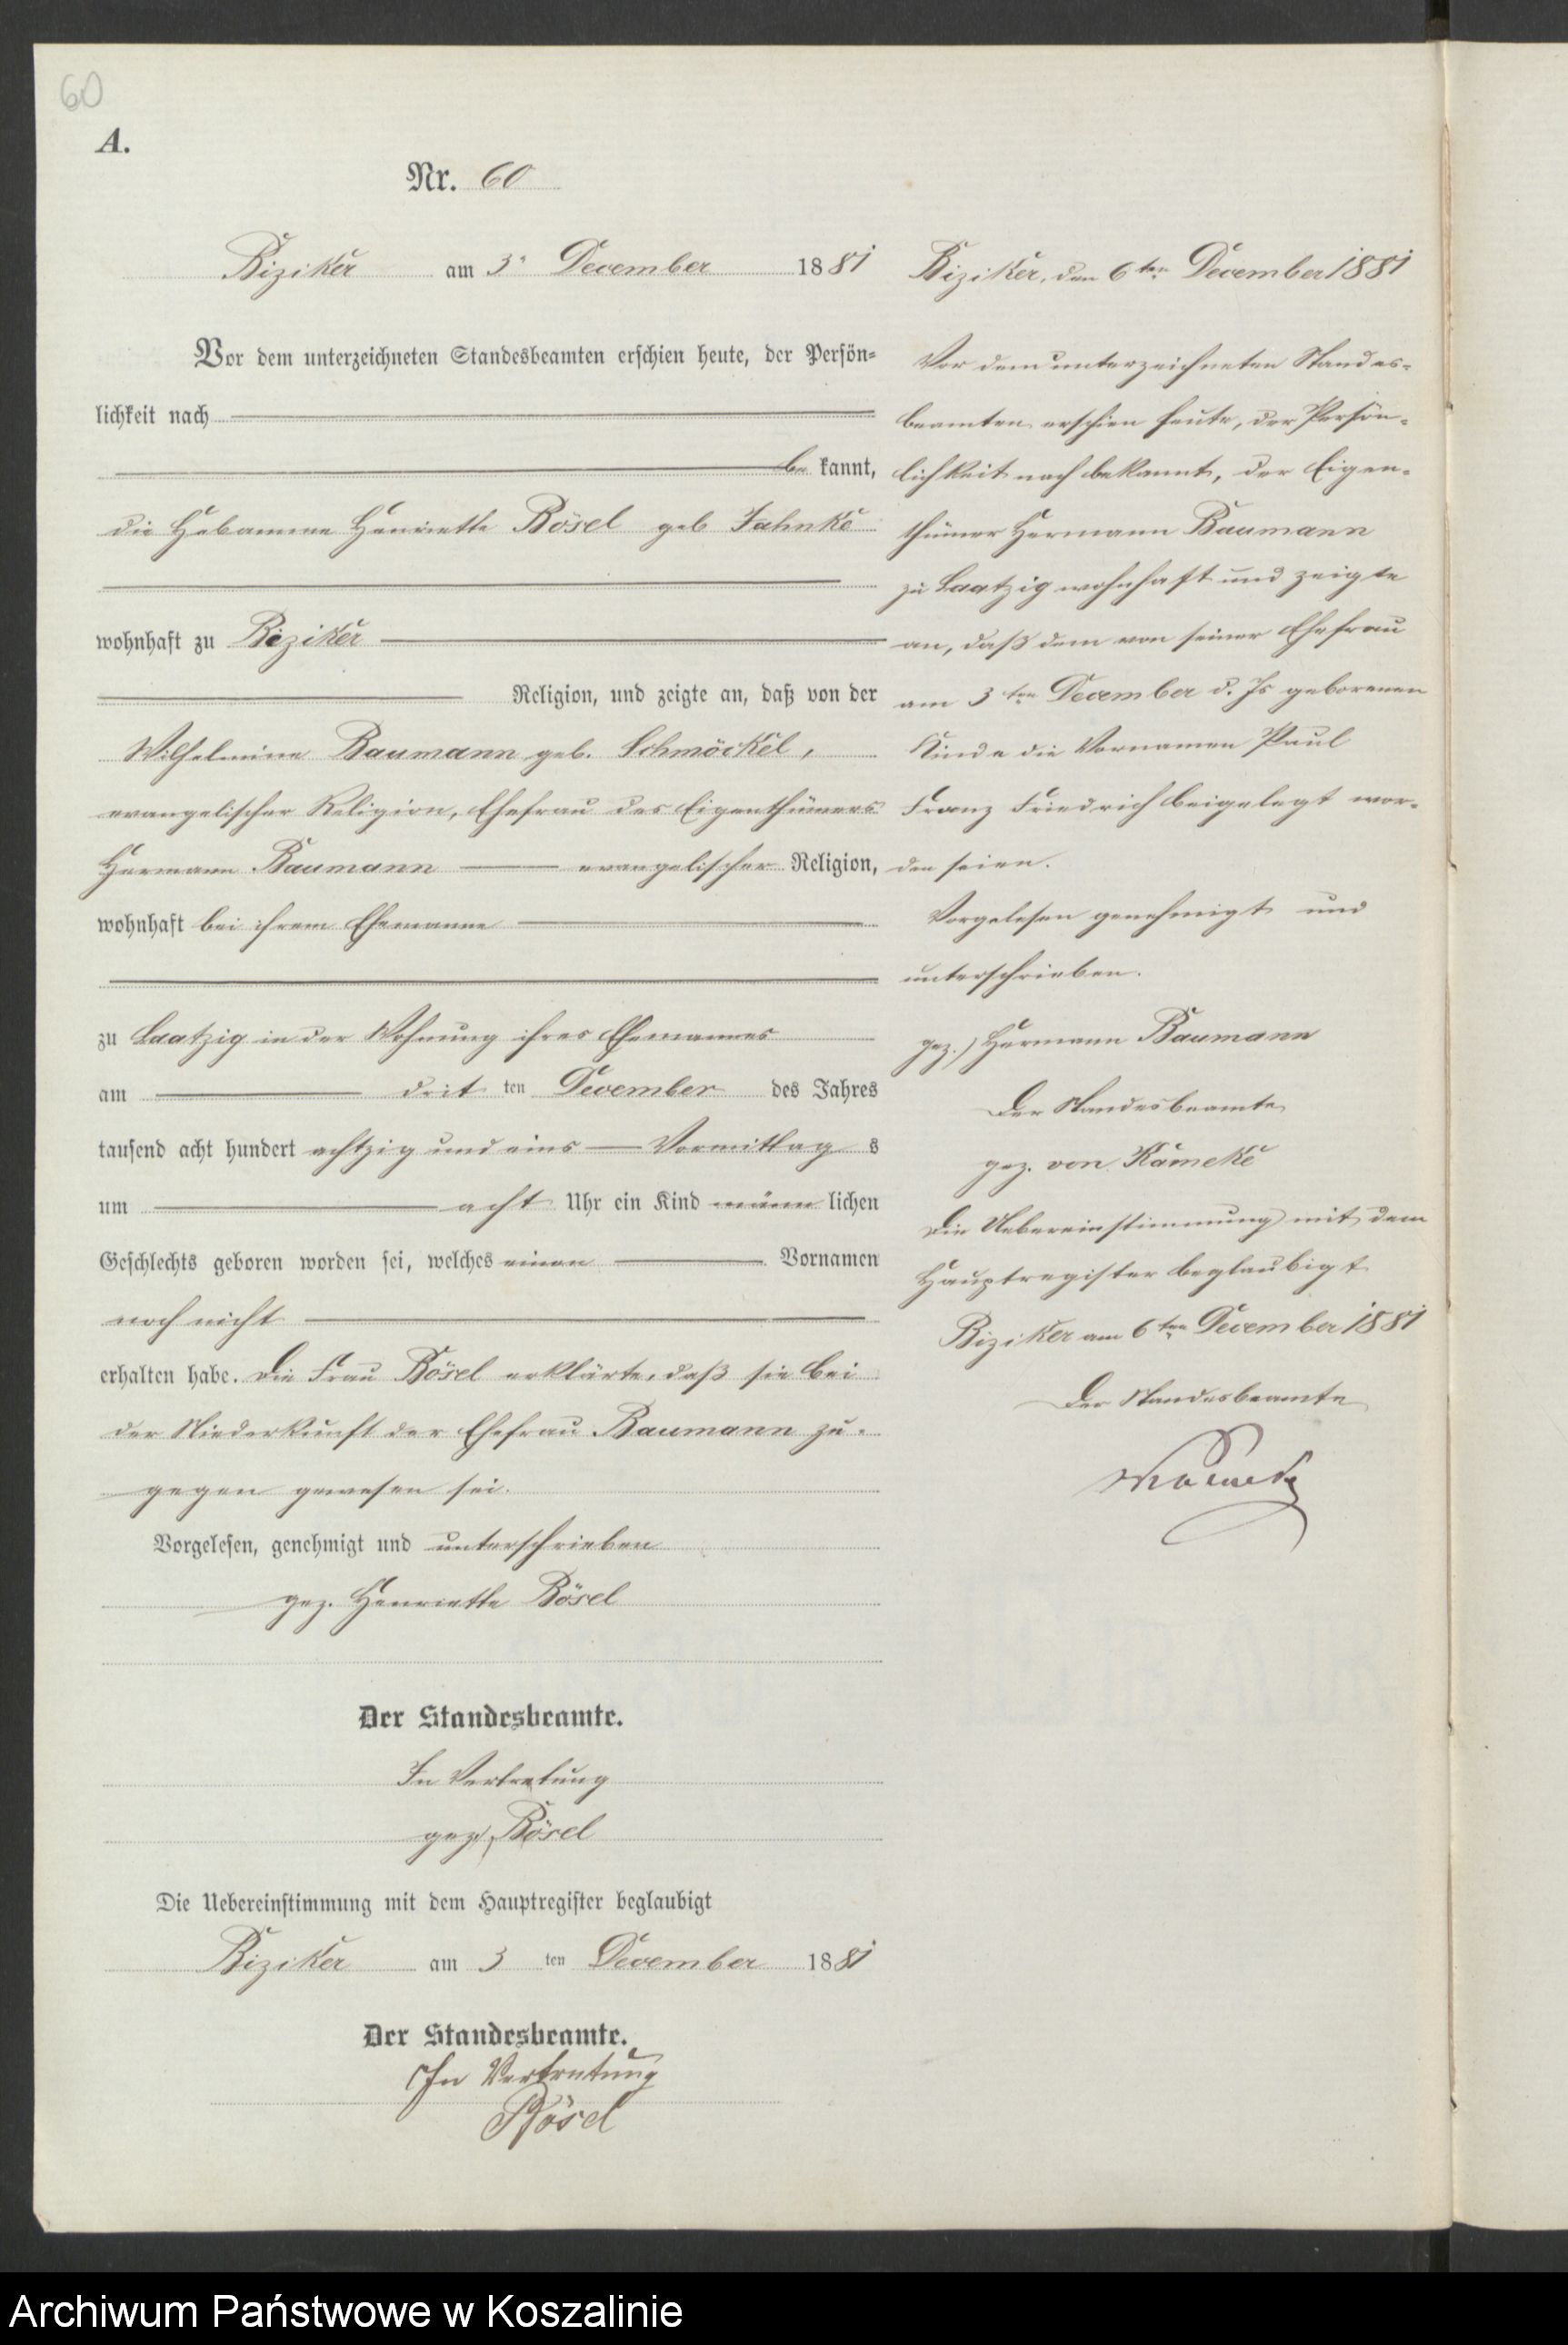 60
A.
Nr. 60
Biziker am 3. December 1881
Vor dem unterzeichneten Standesbeamten erschien heute, der Persön-
lichkeit nach
be kannt,
die Hebamme Henriette Bösel geb Jahnke
wohnhaft zu Biziker
Religion, und zeigte an, daß von der
Wilhelmine Baumann geb. Schmöckel,
evangelischer Religion, Ehefrau des Eigenthümers
Hermann Baumann evangelischer Religion,
wohnhaft bei ihrem Ehemanne
zu Laatzig in der Wohnung ihres Ehemannes
am drit ten December des Jahres
tausend acht hundert achtzig und eins Vormittag s
um acht Uhr ein Kind männ lichen
Geschlechts geboren worden sei, welches einen Vornamen
noch nicht
erhalten habe. Die Frau Bösel erklärte, daß sie bei
der Niederkunft der Ehefrau Baumann zu-
gegen gewesen sei.
Vorgelesen, genehmigt und unterschrieben
gez. Henriette Bösel
Der Standesbeamte.
In Vertretung
gez. Bösel
Die Uebereinstimmung mit dem Hauptregister beglaubigt
Biziker am 3 ten December 1881
Der Standesbeamte.
In Vertretung
Bösel
Biziker, den 6ten December 1881
Vor dem unterzeichneten Standes-
beamten erschien heute, der Persön-
lichkeit nach bekannt, der Eigen-
thümer Hermann Baumann
zu Laatzig wohnhaft und zeigte
an, daß dem von seiner Ehefrau
am 3ten December d. Js geborenen
Kinde die Vornamen Paul
Franz Friedrich beigelegt wor-
den seien.
Vorgelesen genehmigt und
unterschrieben.
gez.) Hermann Baumann
Der Standesbeamte
gez. von Kameke
Die Uebereinstimmung mit dem
Hauptregister beglaubigt
Biziker am 6ten December 1881
Der Standesbeamte
vKameke
Archiwum Państwowe w Koszalinie